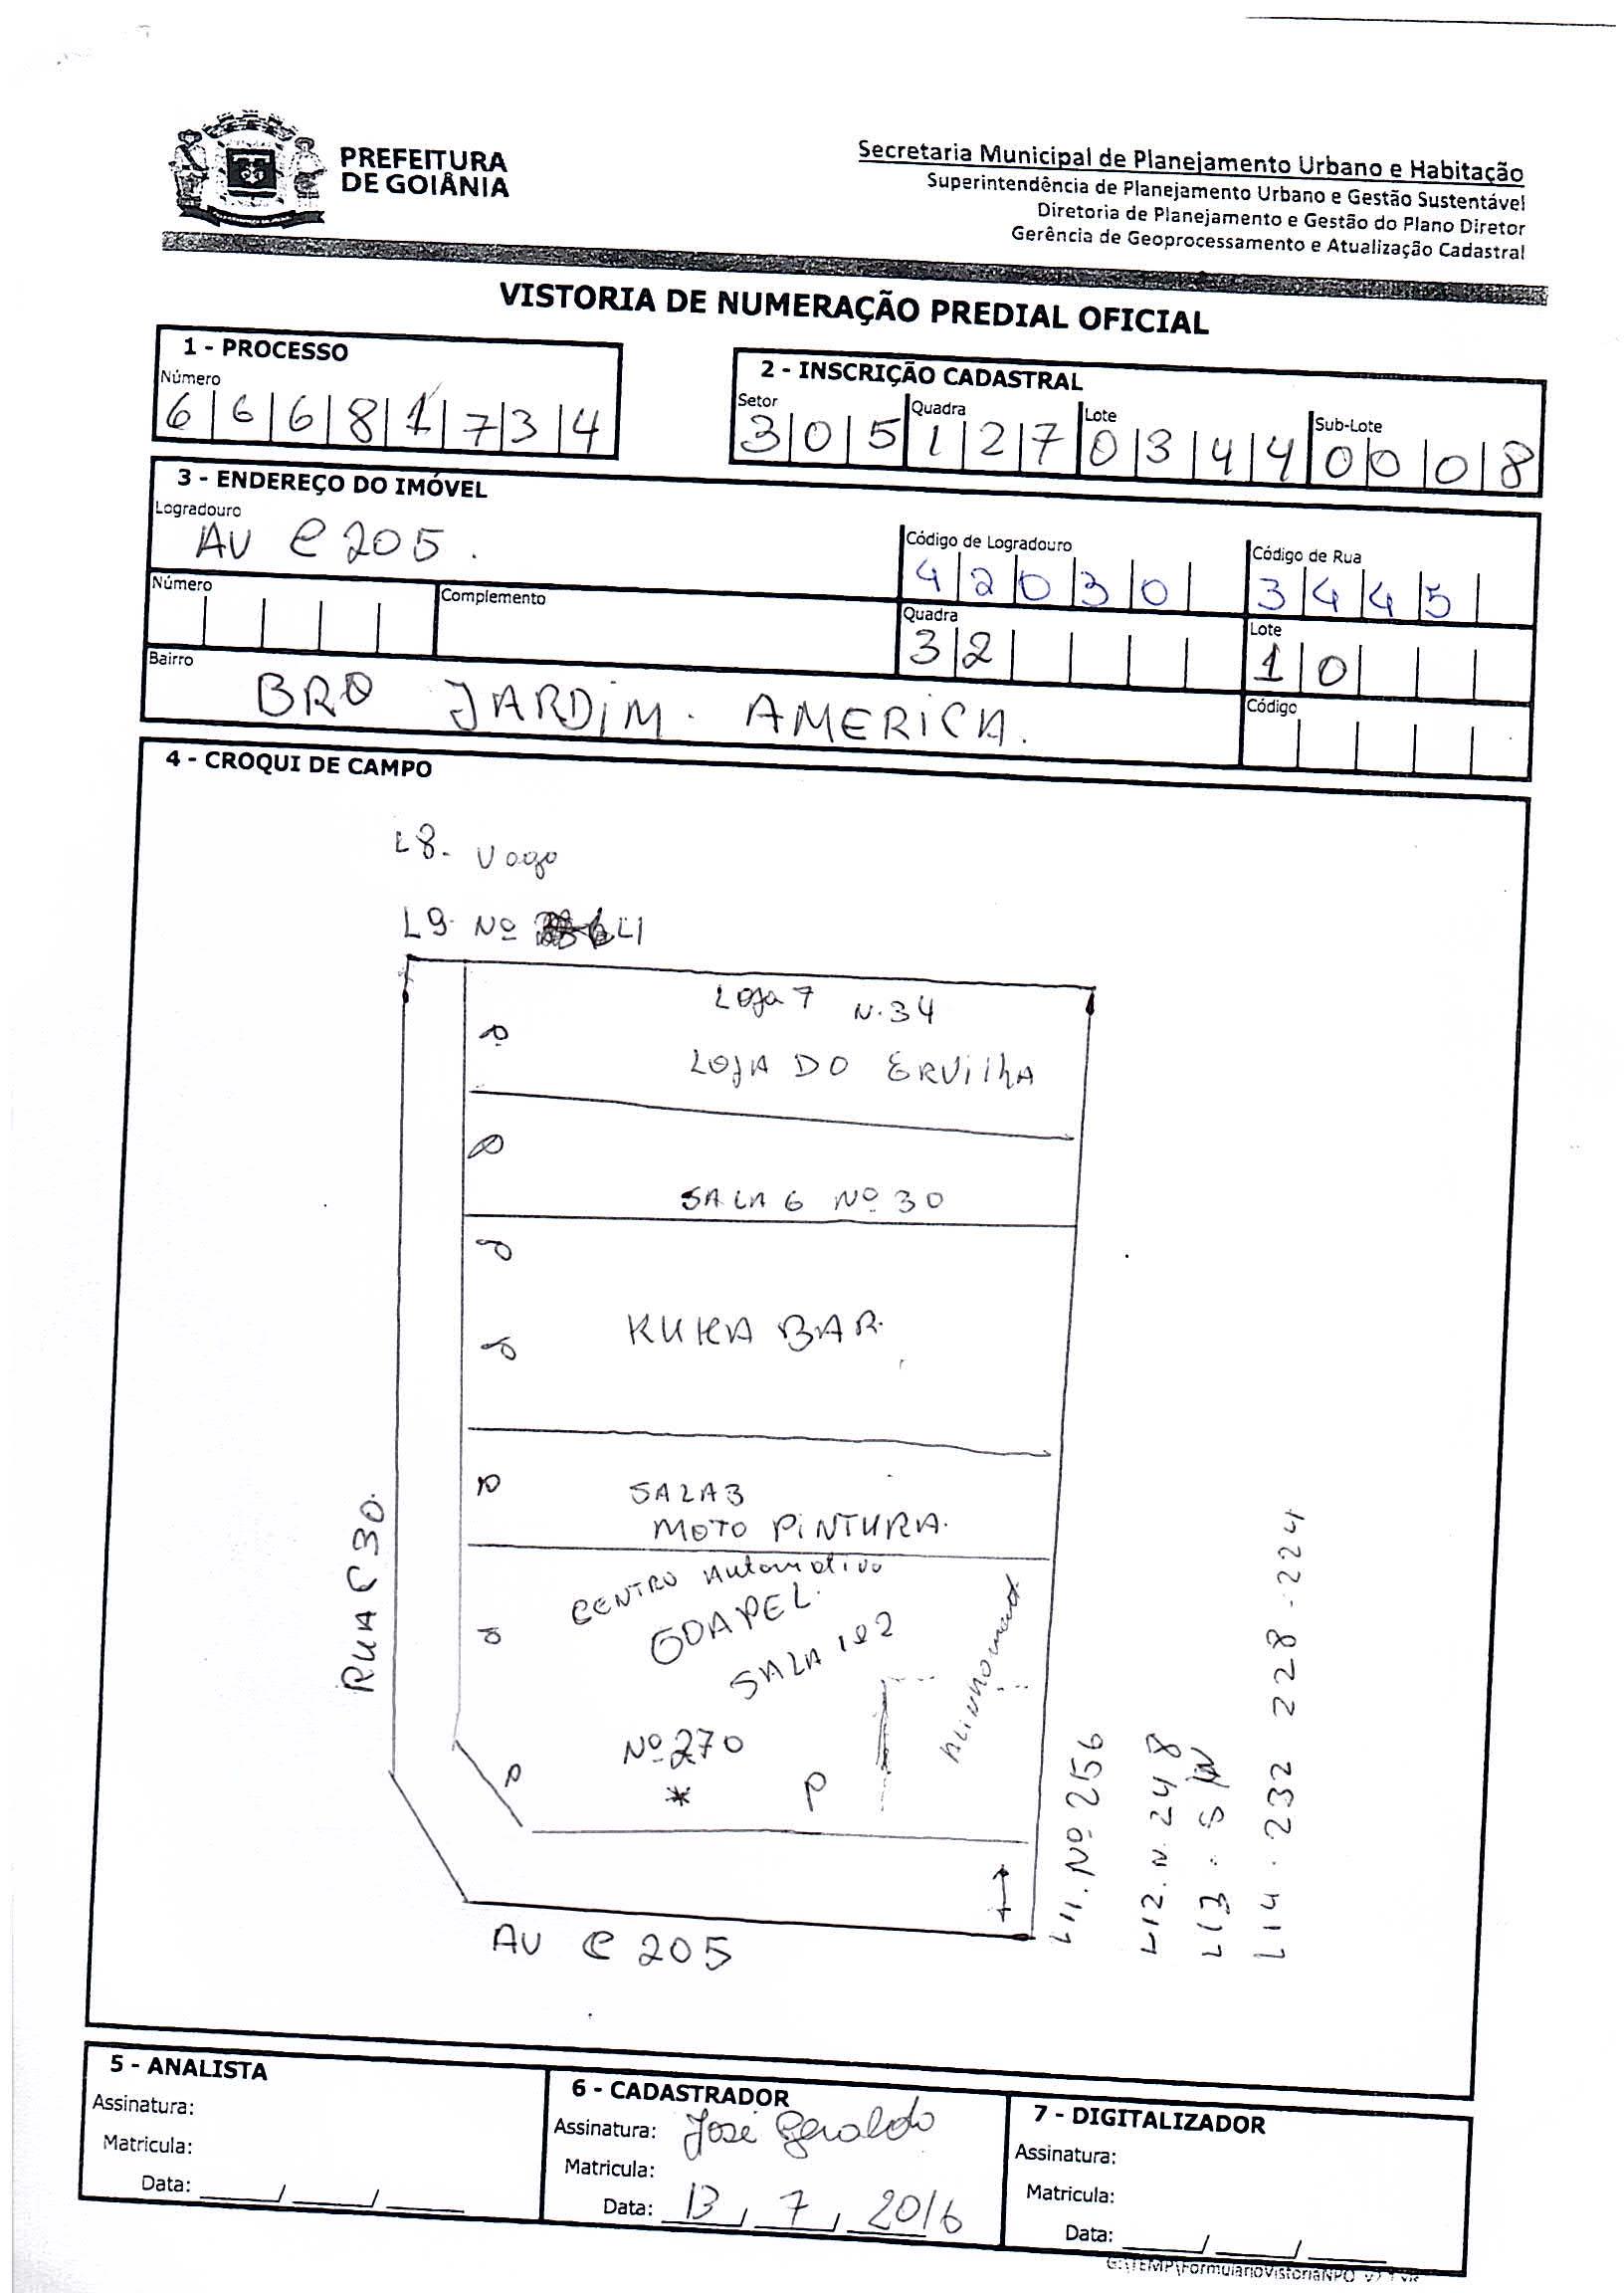 PREFEITURA
DE GOIÂNIA
Secretaria Municipal de Planejamento Urbano e Habitação
Superintendência de Planejamento Urbano e Gestão Sustentável
Diretoria de Planejamento e Gestão do Plano Diretor
Gerência de Geoprocessamento e Atualização Cadastral
VISTORIA DE NUMERAÇÃO PREDIAL OFICIAL
1 - PROCESSO
Número
6 6 6 8 1 7 3 4
2 - INSCRIÇÃO CADASTRAL
Setor Quadra Lote Sub-Lote
3 0 5 1 2 7 0 3 4 4 0 0 0 8
3 - ENDEREÇO DO IMÓVEL
Logradouro
AV C 205.
Código de Logradouro
4 2 0 3 0
Código de Rua
3 4 4 5
Número
Complemento
Quadra
3 2
Lote
1 0
Bairro
BRO JARDIM. AMERICA.
Código
4 - CROQUI DE CAMPO
L8. Vago
L9. Nº 41
Loja 7 N. 34
LOJA DO ERVilhA
P
P
SALA 6 Nº 30
P
KUKA BAR.
P
P
SALA 3
MOTO PINTURA.
CENTRO Automotivo
GOAPEL.
SALA 1 e 2
P
Nº 270
*
P
P
RUA C30.
AV C 205
L11. Nº 256
L12. N. 248
L13. S/N
L14. 232 228-224
5 - ANALISTA
Assinatura:
Matricula:
Data: ____/____/____
6 - CADASTRADOR
Assinatura: José Geraldo
Matricula:
Data: 13/7/2016
7 - DIGITALIZADOR
Assinatura:
Matricula:
Data: ____/____/____